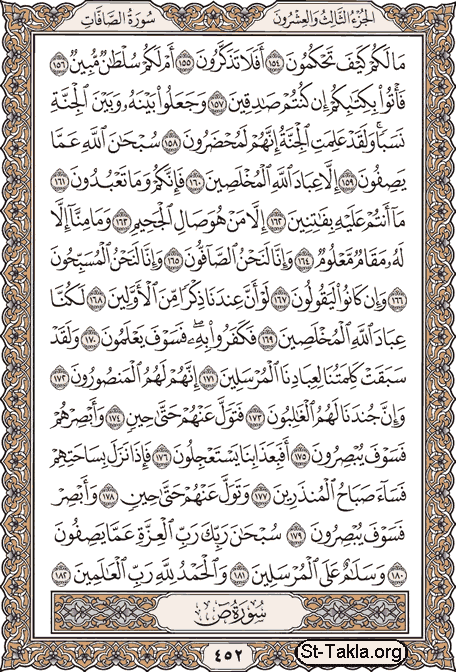 الجزء الثالث والعشرون سورة الصافات
مَا لَكُمْ كَيْفَ تَحْكُمُونَ ١٥٤ أَفَلَا تَذَكَّرُونَ ١٥٥ أَمْ لَكُمْ سُلْطَانٌ مُّبِينٌ ١٥٦
فَأْتُوا۟ بِكِتَابِكُمْ إِن كُنتُمْ صَادِقِينَ ١٥٧ وَجَعَلُوا۟ بَيْنَهُۥ وَبَيْنَ ٱلْجِنَّةِ
نَسَبًا ۚ وَلَقَدْ عَلِمَتِ ٱلْجِنَّةُ إِنَّهُمْ لَمُحْضَرُونَ ١٥٨ سُبْحَانَ ٱللَّهِ عَمَّا
يَصِفُونَ ١٥٩ إِلَّا عِبَادَ ٱللَّهِ ٱلْمُخْلَصِينَ ١٦٠ فَإِنَّكُمْ وَمَا تَعْبُدُونَ ١٦١
مَا أَنتُمْ عَلَيْهِ بِفَاتِنِينَ ١٦٢ إِلَّا مَنْ هُوَ صَالِ ٱلْجَحِيمِ ١٦٣ وَمَا مِنَّا إِلَّا
لَهُۥ مَقَامٌ مَّعْلُومٌ ١٦٤ وَإِنَّا لَنَحْنُ ٱلصَّافُّونَ ١٦٥ وَإِنَّا لَنَحْنُ ٱلْمُسَبِّحُونَ
١٦٦ وَإِن كَانُوا۟ لَيَقُولُونَ ١٦٧ لَوْ أَنَّ عِندَنَا ذِكْرًا مِّنَ ٱلْأَوَّلِينَ ١٦٨ لَكُنَّا
عِبَادَ ٱللَّهِ ٱلْمُخْلَصِينَ ١٦٩ فَكَفَرُوا۟ بِهِۦ ۖ فَسَوْفَ يَعْلَمُونَ ١٧٠ وَلَقَدْ
سَبَقَتْ كَلِمَتُنَا لِعِبَادِنَا ٱلْمُرْسَلِينَ ١٧١ إِنَّهُمْ لَهُمُ ٱلْمَنصُورُونَ ١٧٢
وَإِنَّ جُندَنَا لَهُمُ ٱلْغَالِبُونَ ١٧٣ فَتَوَلَّ عَنْهُمْ حَتَّىٰ حِينٍ ١٧٤ وَأَبْصِرْهُمْ
فَسَوْفَ يُبْصِرُونَ ١٧٥ أَفَبِعَذَابِنَا يَسْتَعْجِلُونَ ١٧٦ فَإِذَا نَزَلَ بِسَاحَتِهِمْ
فَسَاءَ صَبَاحُ ٱلْمُنذَرِينَ ١٧٧ وَتَوَلَّ عَنْهُمْ حَتَّىٰ حِينٍ ١٧٨ وَأَبْصِرْ
فَسَوْفَ يُبْصِرُونَ ١٧٩ سُبْحَانَ رَبِّكَ رَبِّ ٱلْعِزَّةِ عَمَّا يَصِفُونَ
١٨٠ وَسَلَامٌ عَلَى ٱلْمُرْسَلِينَ ١٨١ وَٱلْحَمْدُ لِلَّهِ رَبِّ ٱلْعَالَمِينَ ١٨٢
سورة ص
٤٥٢
St-Takla.org